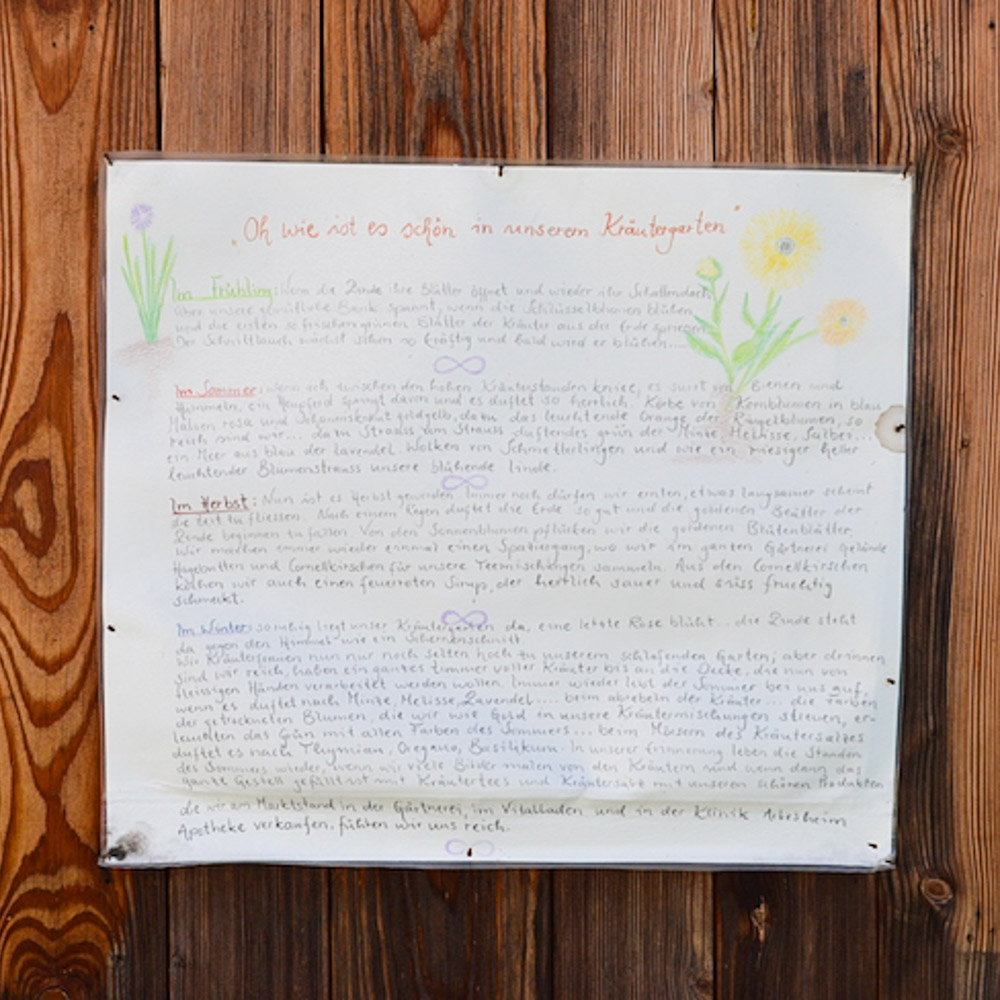 „Oh wie ist es schön in unserem Kräutergarten"
Im Frühling: Wenn die Linde ihre Blätter öffnet und wieder ihr Schattendach
über unsere gemütliche Bank spannt, wenn die Schlüsselblumen blühen
und die ersten so frischen grünen Blätter der Kräuter aus der Erde spriessen.
Der Schnittlauch wächst schon so kräftig und bald wird er blühen....
Im Sommer: Wenn ich zwischen den hohen Kräuterstauden kniee, es surrt von Bienen und
Hummeln, ein Heupferd springt davon und es duftet so herrlich. Körbe von Kornblumen in blau
Malven rosa und Johanniskraut goldgelb, dazu das leuchtende Orange der Ringelblumen, so
reich sind wir... dazu Strauss um Strauss duftendes grün der Minze Melisse, Salbei...
ein Meer aus blau der Lavendel. Wolken von Schmetterlingen und wie ein riesiger heller
leuchtender Blumenstrauss unsere blühende Linde.
Im Herbst: Nun ist es Herbst geworden. Immer noch dürfen wir ernten, etwas langsamer scheint
die Zeit zu fliessen. Nach einem Regen duftet die Erde so gut und die goldenen Blätter der
Linde beginnen zu fallen. Von den Sonnenblumen pflücken wir die goldenen Blütenblätter.
Wir machen immer wieder einmal einen Spaziergang, wo wir im ganzen Gärtnerei Gelände
Hagebutten und Cornellkirschen für unsere Teemischungen sammeln. Aus den Cornellkirschen
kochen wir auch einen feuerroten Sirup, der herrlich sauer und süss fruchtig
schmeckt.
Im Winter: so ruhig liegt unser Kräutergarten da, eine letzte Rose blüht... die Linde steht
da gegen den Himmel wie ein Scherenschnitt
Wir Kräuterfrauen nun nur noch selten hoch zu unserem schlafenden Garten; aber drinnen
sind wir reich, haben ein ganzes Zimmer voller Kräuter bis an die Decke, die nun von
fleissigen Händen verarbeitet werden wollen. Immer wieder lebt der Sommer bei uns auf,
wenn es duftet nach Minze, Melisse, Lavendel.... beim abrebeln der Kräuter... die Farben
der getrockneten Blumen, die wir wie Gold in unsere Kräutermischungen streuen, er-
leuchten das Grün mit allen Farben des Sommers... beim Mörsern des Kräutersalzes
duftet es nach Thymian, Oregano, Basilikum. In unserer Erinnerung leben die Stunden
des Sommers wieder, wenn wir viele Bilder malen von den Kräutern und wenn dann das
ganze Gestell gefüllt ist mit Kräutertees und Kräutersalz mit unseren schönen Produkten
die wir am Marktstand in der Gärtnerei, im Vitalladen und in der Klinik Arlesheim
Apotheke verkaufen, fühlen wir uns reich.